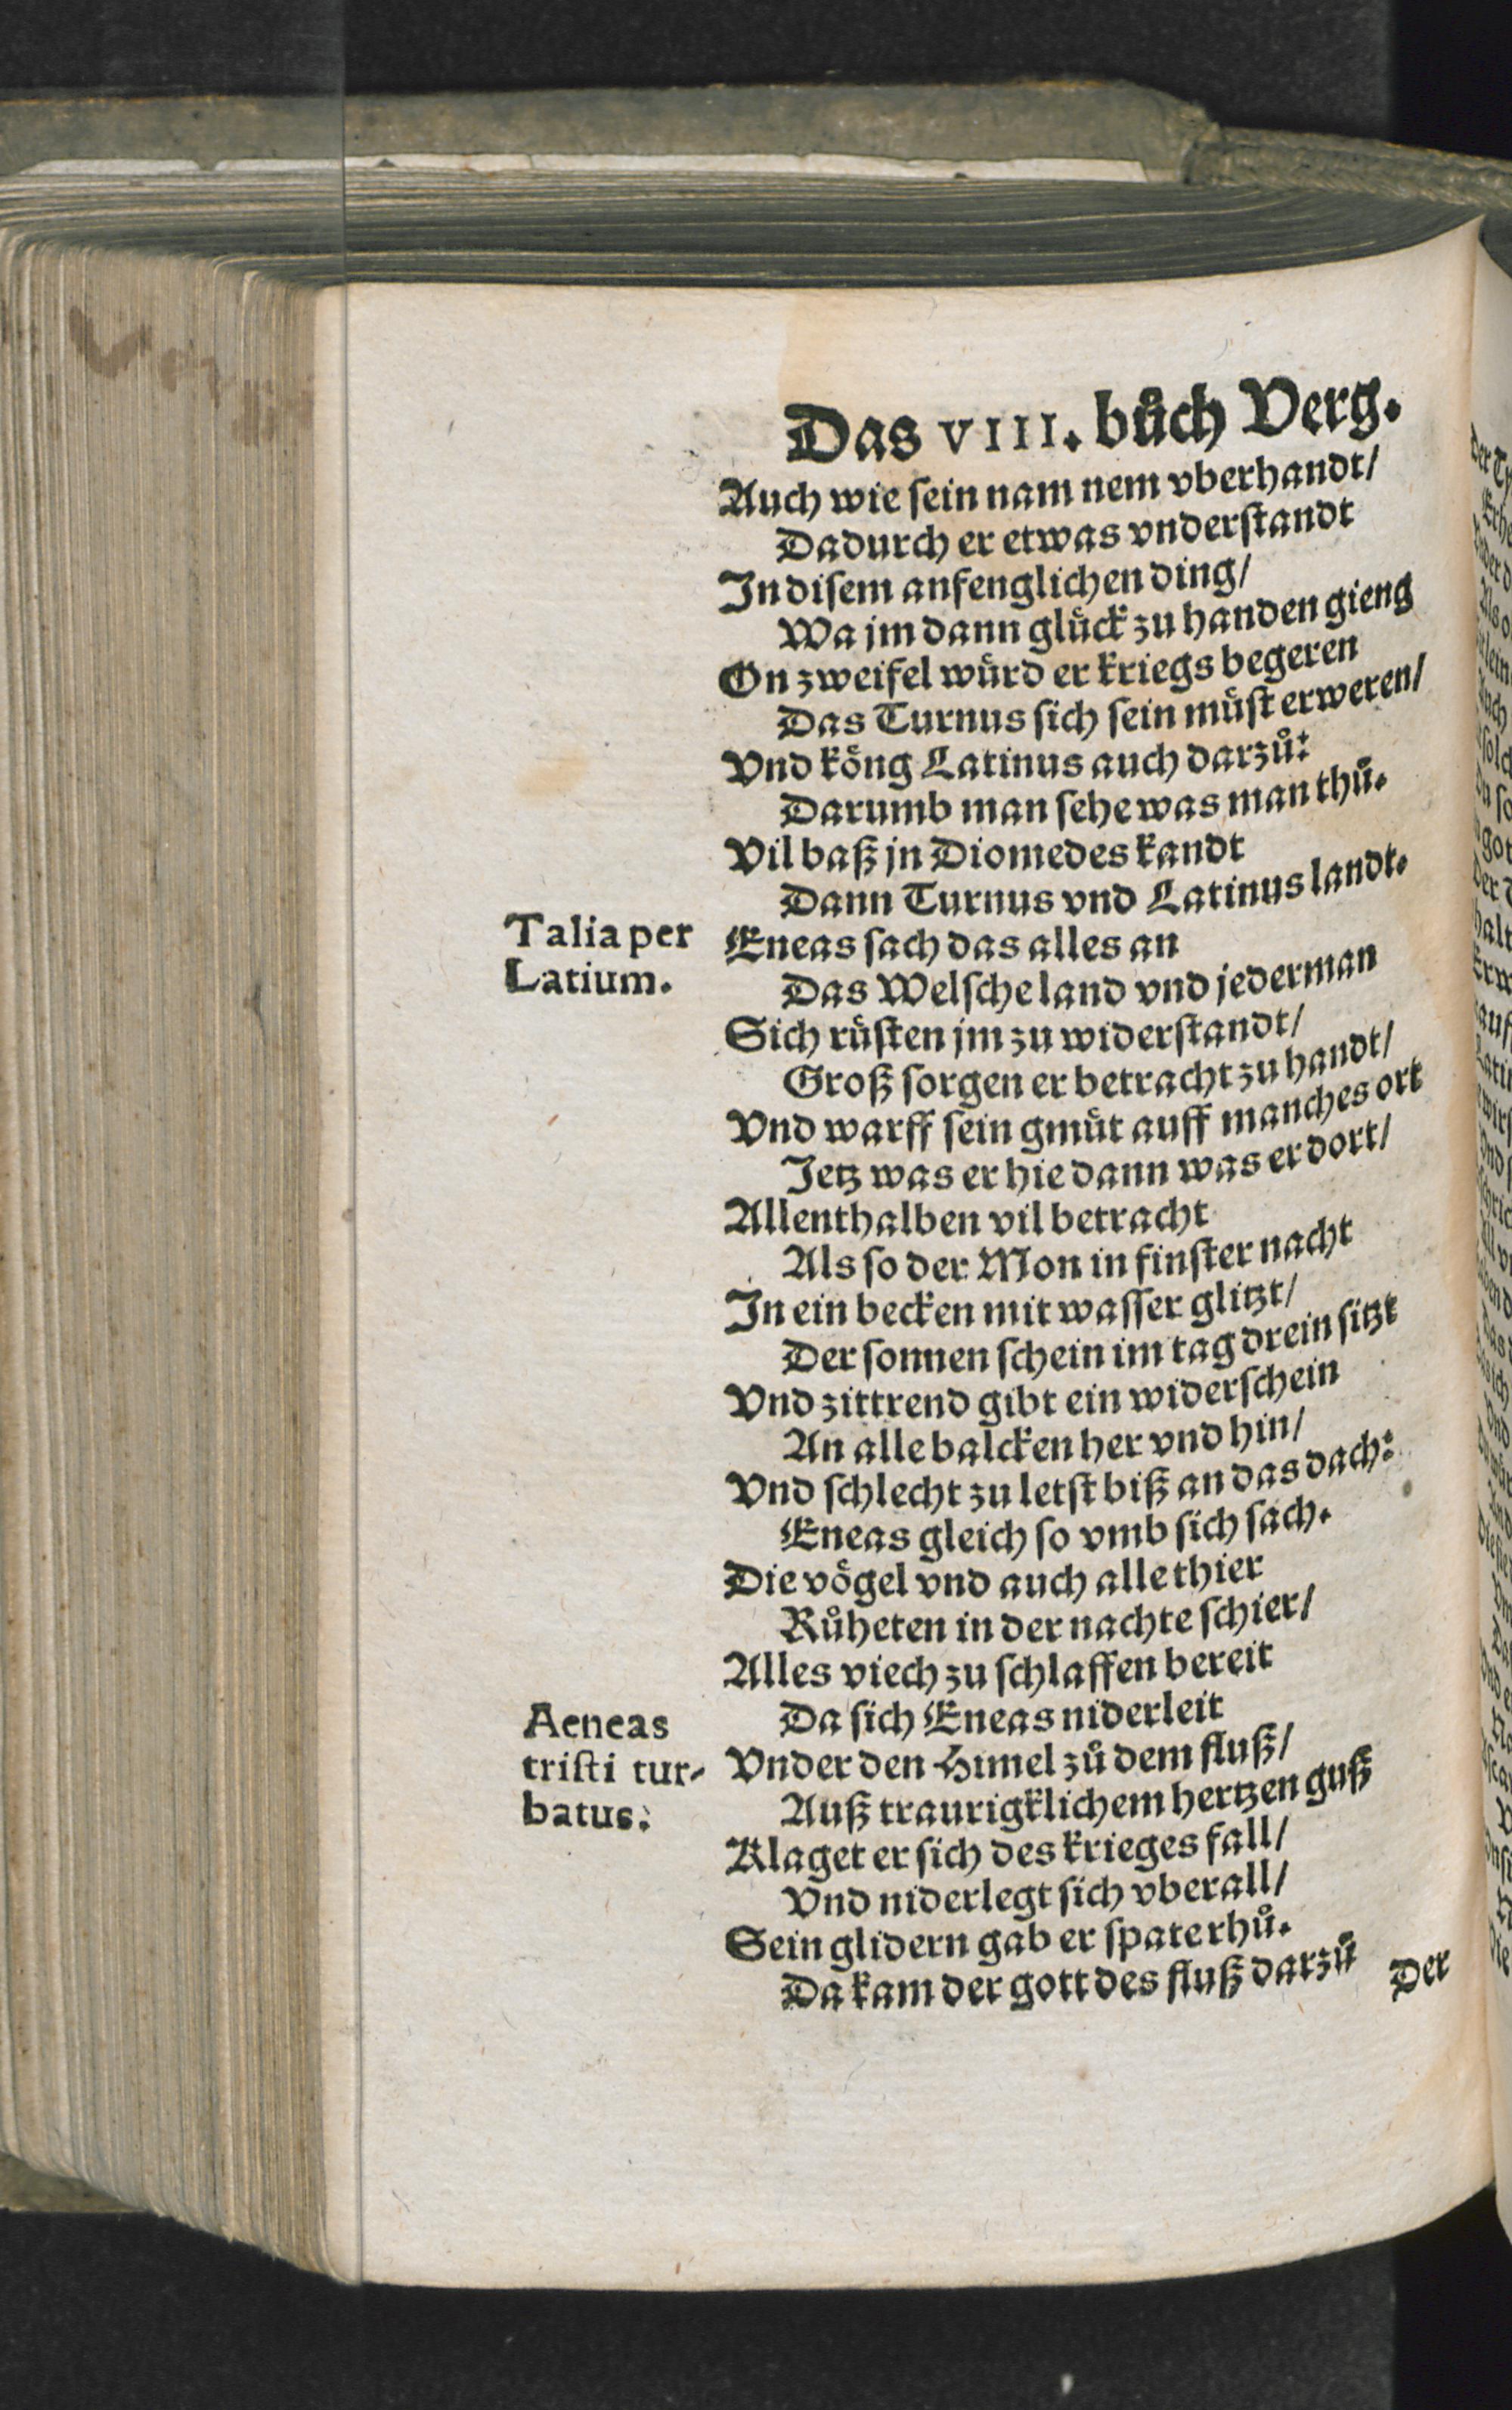 Das VIII. bůch Verg.
Auch wie ſein nam nem vberhandt/
Dadurch er etwas vnderſtandt
In diſem anfenglichen ding/
Wa jm dann glück zu handen gieng
On zweifel würd er kriegs begeren
Das Turnus ſich ſein müſt erweren/
Vnd köng Latinus auch darzů:
Darumb man ſehe was man thů.
Vil baß jn Diomedes kandt
Dann Turnus vnd Latinus landt.
Talia per
Latium.
Eneas ſach das alles an
Das Welſche land vnd jederman
Sich rüſten jm zu widerſtandt/
Groß ſorgen er betracht zu handt/
Vnd warff ſein gmüt auff manches ort
Jetz was er hie dann was er dort/
Allenthalben vil betracht
Als ſo der Mon in finſter nacht
In ein becken mit waſſer glitzt/
Der ſonnen ſchein im tag drein ſitzt
Vnd zittrend gibt ein widerſchein
An alle balcken her vnd hin/
Vnd ſchlecht zu letſt biß an das dach:
Eneas gleich ſo vmb ſich ſach.
Die vögel vnd auch alle thier
Růheten in der nachte ſchier/
Alles viech zu ſchlaffen bereit
Aeneas
triſti tur-
batus.
Da ſich Eneas niderleit
Vnder den Himel zů dem fluß/
Auß traurigklichem hertzen guß
Klaget er ſich des krieges fall/
Vnd niderlegt ſich vberall/
Sein glidern gab er ſpate rhů.
Da kam der gott des fluß darzů
Der